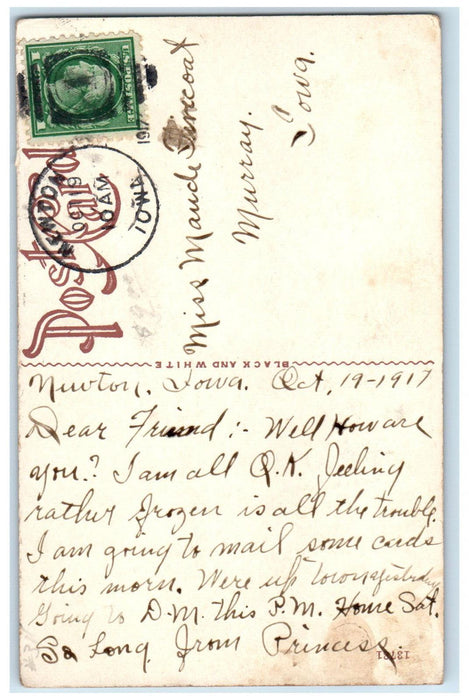 Post Card
NEWTON
OCT 19
10 AM
IOWA
1917
Miss Maude
Murray.
Iowa.
BLACK AND WHITE
Newton, Iowa. Oct, 19-1917
Dear Friend:- Well How are
you.? I am all O.K. Feeling
rather frozen is all the trouble.
I am going to mail some cards
this morn. Were up town yesterday
Going to D.M. this P.M. Home Sat.
So Long. From Princess.
13781